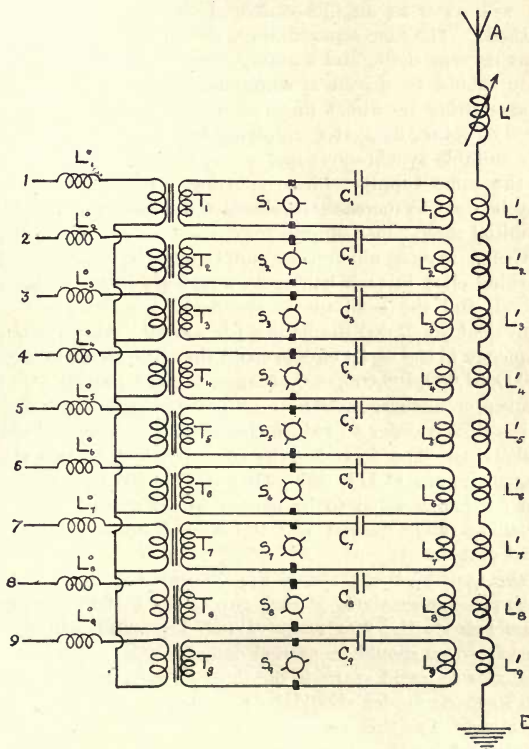 A
L'
L°₁
1 T₁ S₁ C₁ L₁ L'₁
L°₂
2 T₂ S₂ C₂ L₂ L'₂
L°₃
3 T₃ S₃ C₃ L₃ L'₃
L°₄
4 T₄ S₄ C₄ L₄ L'₄
L°₅
5 T₅ S₅ C₅ L₅ L'₅
L°₆
6 T₆ S₆ C₆ L₆ L'₆
L°₇
7 T₇ S₇ C₇ L₇ L'₇
L°₈
8 T S₈ C₈ L₈ L'₈
L°₉
9 T₉ S₉ C₉ L₉ L'₉
E